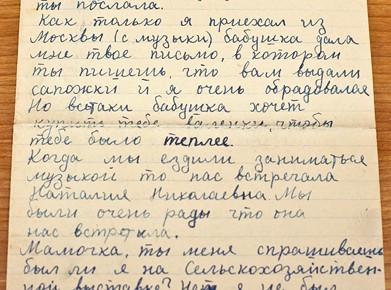 ты послала.
Как только я приехал из
Москвы (с музыки) бабушка дала
мне твое письмо, в котором
ты пишешь, что вам выдали
сапожки и я очень обрадовался
Но всетаки бабушка хочет
купить тебе валенки, чтобы
тебе было теплее.
Когда мы ездили заниматься
музыкой то нас встречала
Наталия Николаевна. Мы
были очень рады что она
нас встретила.
Мамочка, ты меня спрашиваешь
был ли я на Сельскохозяйствен-
ной выставке? Нет я не был